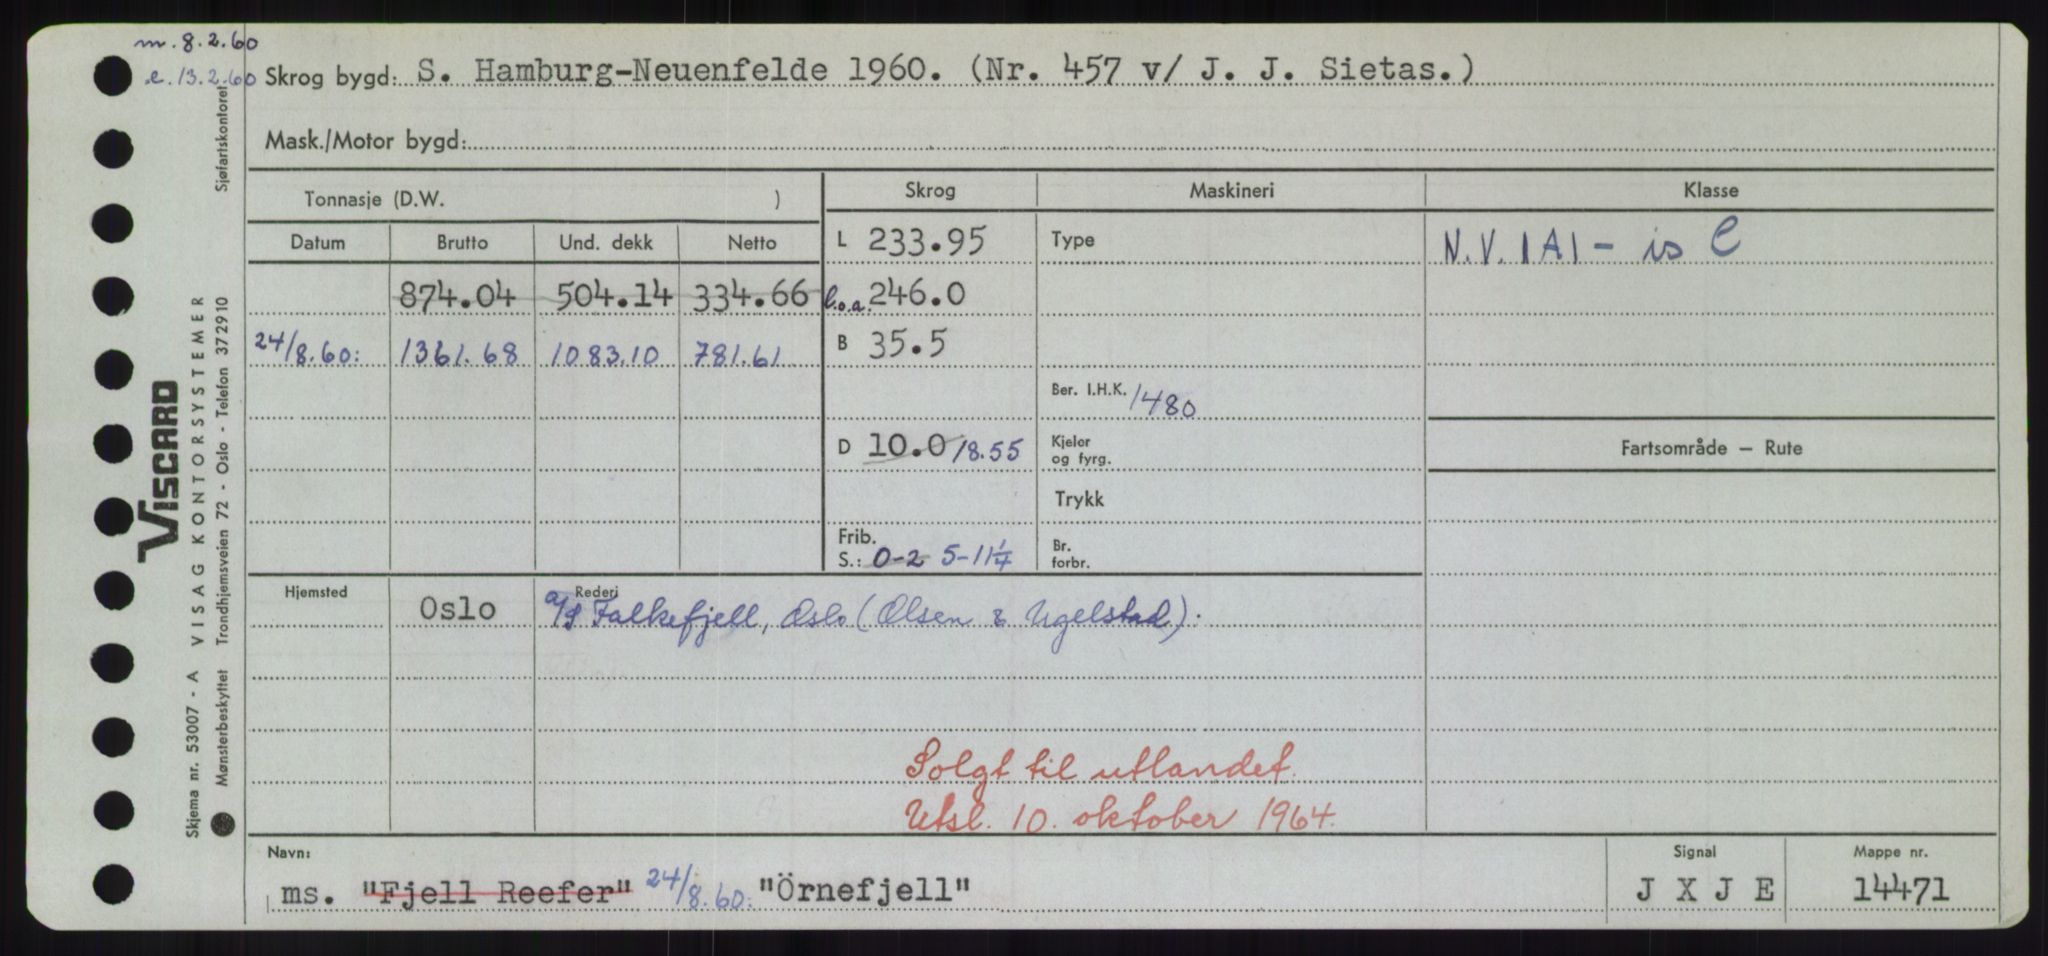 m. 8.2.60
e. 13.2.60
Skrog bygd: S. Hamburg-Neuenfelde 1960. (Nr. 457 v/ J. J. Sietas.)
Mask./Motor bygd:
Tonnasje (D.W. )
Skrog Maskineri Klasse
Datum Brutto Und. dekk Netto
L 233.95 Type N.V. 1A1 - is C
874.04 504.14 334.66 l.o.a. 246.0
24/8.60: 1361.68 1083.10 781.61 B 35.5
Ber. I.H.K. 1480
D 10.0/8.55 Kjeler og fyrg. Fartsområde — Rute
Trykk
Frib. S.: 0-2 5-11¼ Br. forbr.
Hjemsted Rederi
Oslo a/s Falkefjell, Oslo (Olsen & Ugelstad).
Solgt til utlandet.
Utsl. 10. oktober 1964.
Navn: Signal Mappe nr.
ms. "Fjell Reefer" 24/8.60: "Örnefjell" J X J E 14471
VISCARD
Skjema nr. 53007 - A VISAG KONTORSYSTEMER
Mønsterbeskyttet Trondhjemsveien 72 - Oslo - Telefon 372910 Sjøfartskontoret